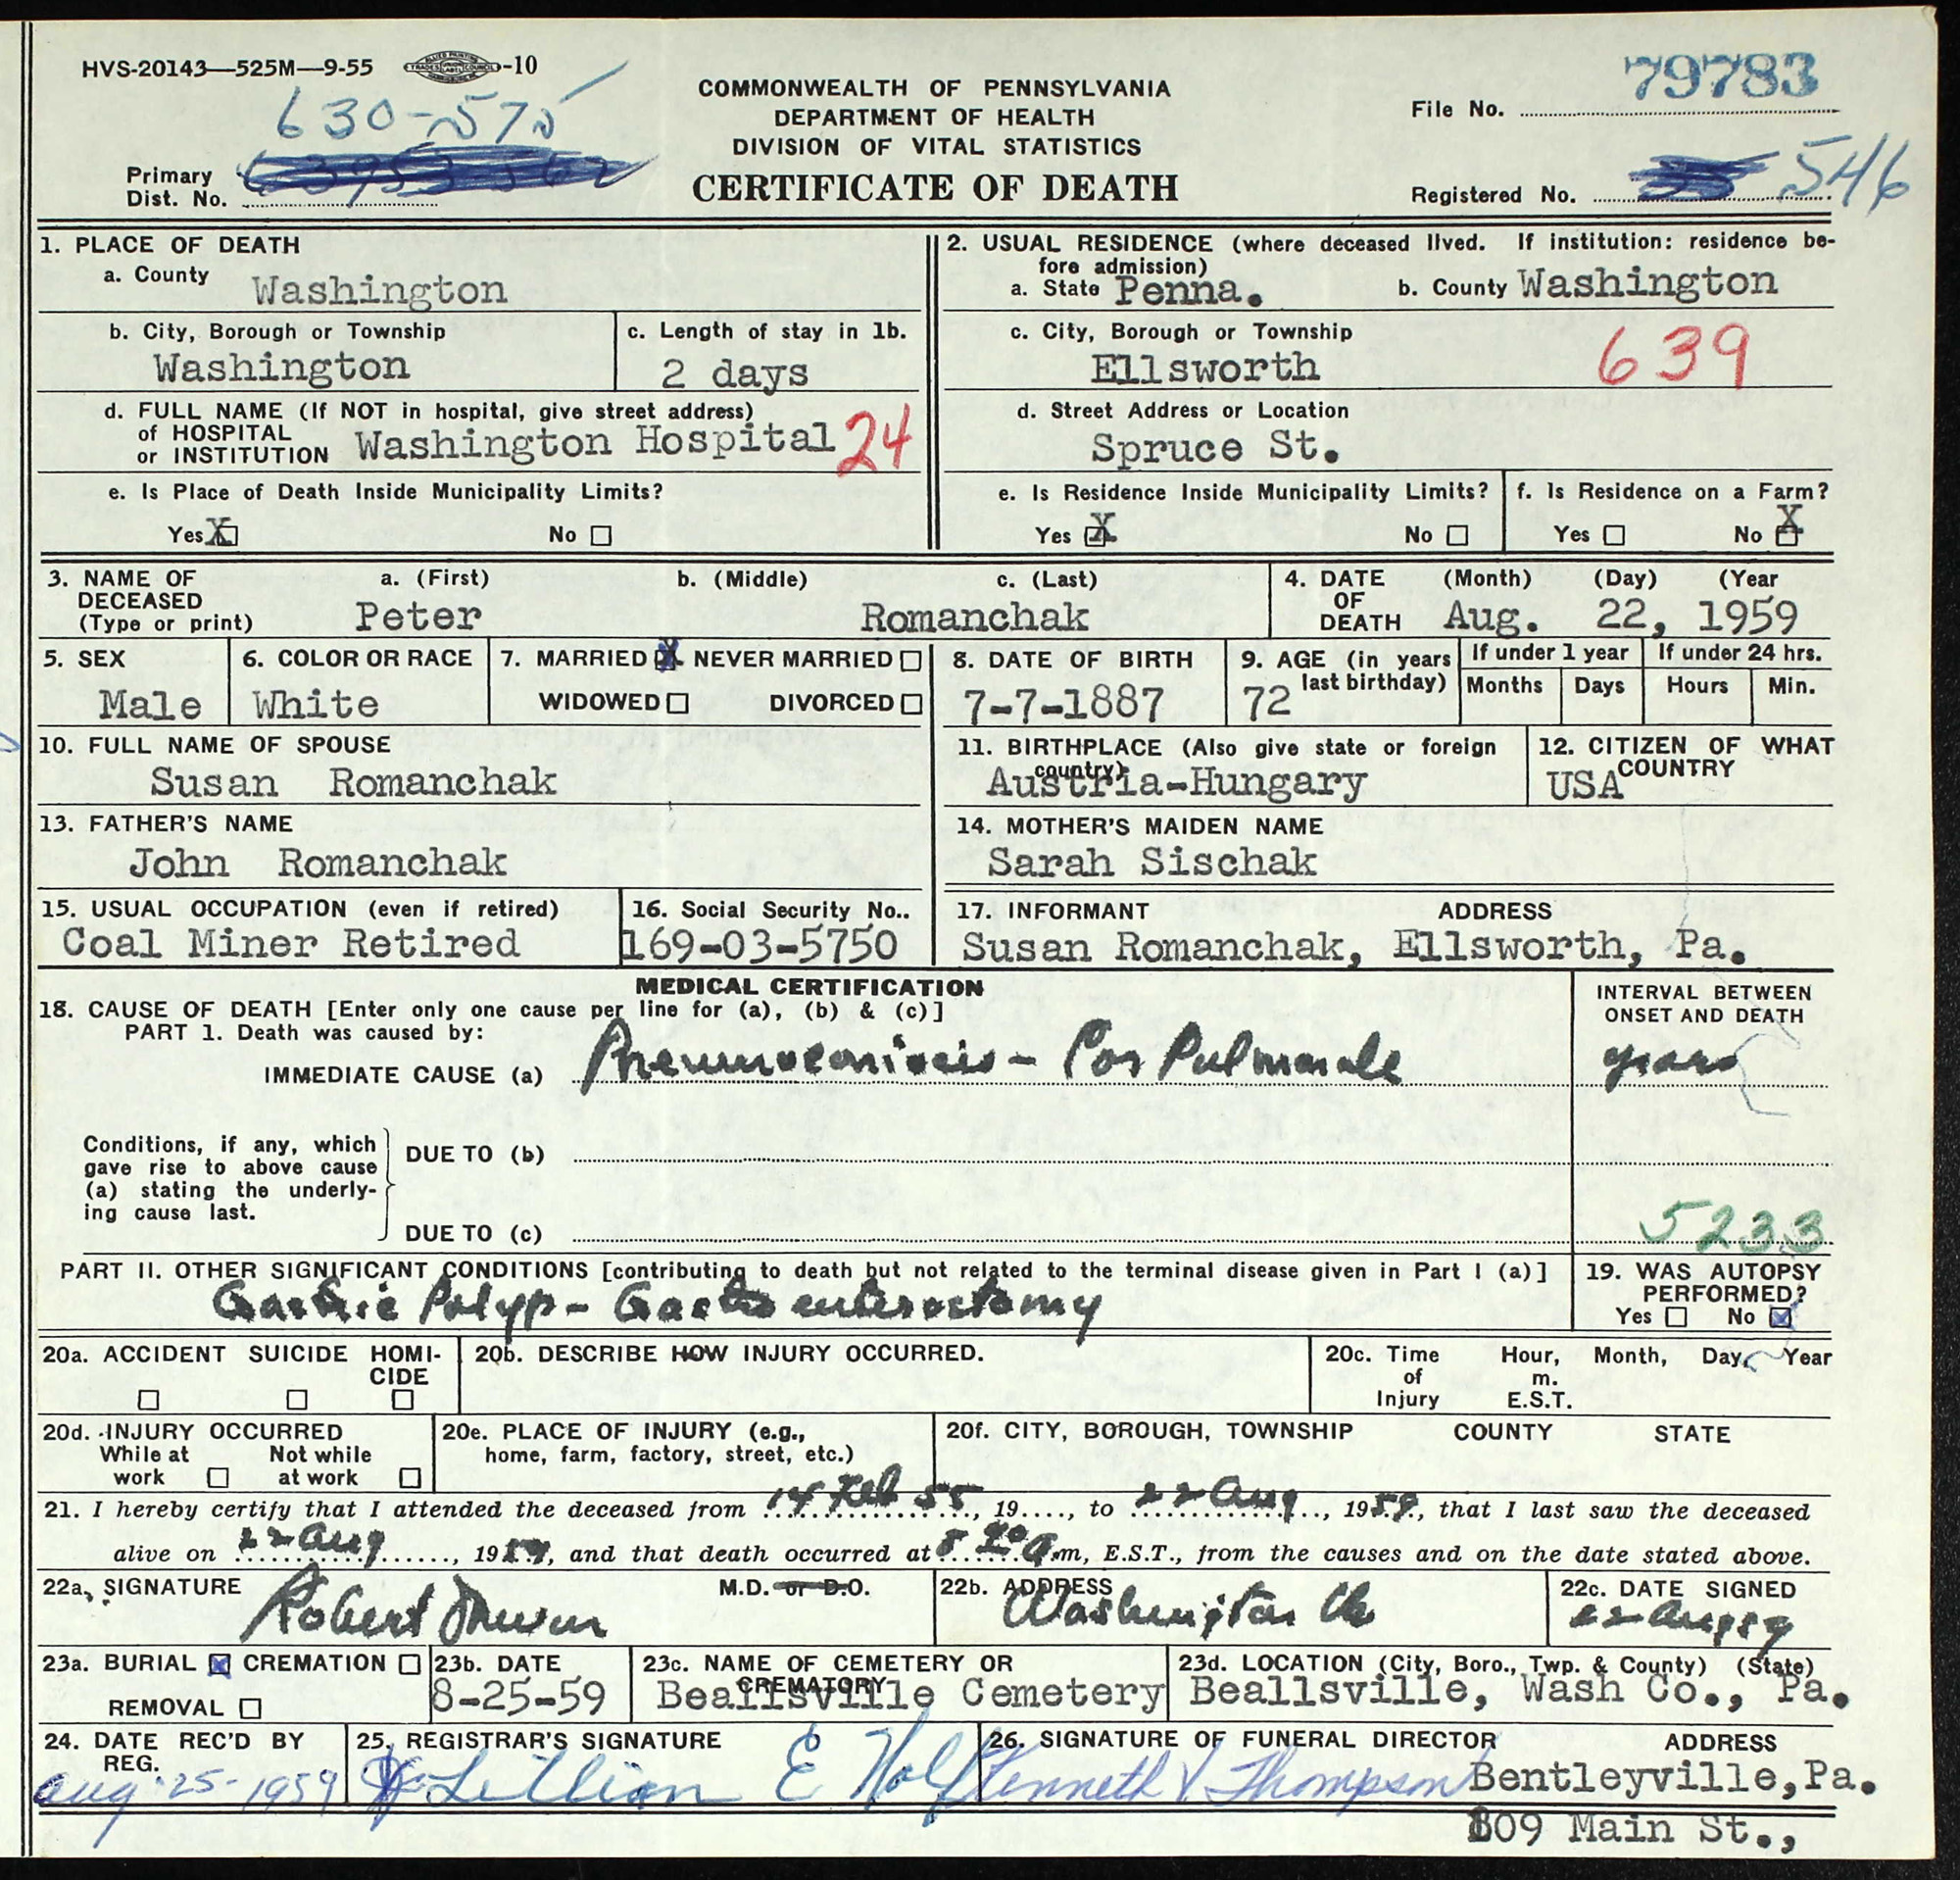 HVS-20143—525M—9-55 -10
630-575
COMMONWEALTH OF PENNSYLVANIA
DEPARTMENT OF HEALTH
DIVISION OF VITAL STATISTICS
CERTIFICATE OF DEATH
Primary
Dist. No.
79783
File No.
Registered No. 546
1. PLACE OF DEATH
a. County Washington
b. City, Borough or Township
Washington
c. Length of stay in 1b.
2 days
d. FULL NAME (If NOT in hospital, give street address)
of HOSPITAL
or INSTITUTION Washington Hospital 24
e. Is Place of Death Inside Municipality Limits?
Yes X No
2. USUAL RESIDENCE (where deceased lived. If institution: residence be-
fore admission)
a. State Penna. b. County Washington
c. City, Borough or Township
Ellsworth 639
d. Street Address or Location
Spruce St.
e. Is Residence Inside Municipality Limits?
Yes X No
f. Is Residence on a Farm?
Yes No X
3. NAME OF
DECEASED
(Type or print)
a. (First) b. (Middle) c. (Last)
Peter Romanchak
4. DATE
OF
DEATH
(Month) (Day) (Year
Aug. 22, 1959
5. SEX
Male
6. COLOR OR RACE
White
7. MARRIED X NEVER MARRIED
WIDOWED DIVORCED
8. DATE OF BIRTH
7-7-1887
9. AGE (in years
last birthday)
72
If under 1 year
Months Days
If under 24 hrs.
Hours Min.
10. FULL NAME OF SPOUSE
Susan Romanchak
11. BIRTHPLACE (Also give state or foreign
country)
Austria-Hungary
12. CITIZEN OF WHAT
COUNTRY
USA
13. FATHER'S NAME
John Romanchak
14. MOTHER'S MAIDEN NAME
Sarah Sischak
15. USUAL OCCUPATION (even if retired)
Coal Miner Retired
16. Social Security No..
169-03-5750
17. INFORMANT ADDRESS
Susan Romanchak, Ellsworth, Pa.
MEDICAL CERTIFICATION
18. CAUSE OF DEATH [Enter only one cause per line for (a), (b) & (c)]
PART 1. Death was caused by:
IMMEDIATE CAUSE (a) Pneumoconiosis - Cor Pulmonale
INTERVAL BETWEEN
ONSET AND DEATH
years
Conditions, if any, which
gave rise to above cause
(a) stating the underly-
ing cause last.
DUE TO (b)
DUE TO (c)
5233
PART II. OTHER SIGNIFICANT CONDITIONS [contributing to death but not related to the terminal disease given in Part I (a)]
Gastric Polyp - Gastro enterostomy
19. WAS AUTOPSY
PERFORMED?
Yes No X
20a. ACCIDENT SUICIDE HOMI-
CIDE
20b. DESCRIBE HOW INJURY OCCURRED.
20c. Time
of
Injury
Hour, Month, Day, Year
m.
E.S.T.
20d. INJURY OCCURRED
While at
work
Not while
at work
20e. PLACE OF INJURY (e.g.,
home, farm, factory, street, etc.)
20f. CITY, BOROUGH, TOWNSHIP COUNTY STATE
21. I hereby certify that I attended the deceased from 14 Feb 55, 19...., to 22 Aug, 1959, that I last saw the deceased
alive on 22 Aug, 1959, and that death occurred at 8 a.m, E.S.T., from the causes and on the date stated above.
22a. SIGNATURE M.D. or D.O.
Robert
22b. ADDRESS
Washington
22c. DATE SIGNED
22 Aug 59
23a. BURIAL X CREMATION
REMOVAL
23b. DATE
8-25-59
23c. NAME OF CEMETERY OR
CREMATORY
Beallsville Cemetery
23d. LOCATION (City, Boro., Twp. & County) (State)
Beallsville, Wash Co., Pa.
24. DATE REC'D BY
REG.
Aug-25-1959
25. REGISTRAR'S SIGNATURE
Lillian E
26. SIGNATURE OF FUNERAL DIRECTOR ADDRESS
Kenneth V Thompson Bentleyville,Pa.
809 Main St.,